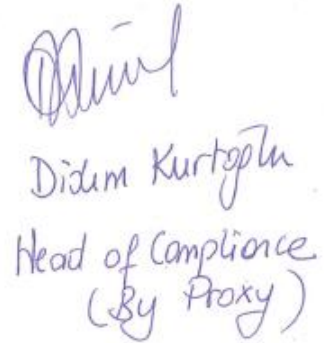 Didem Kurtoğlu
Head of Compliance
(By Proxy)